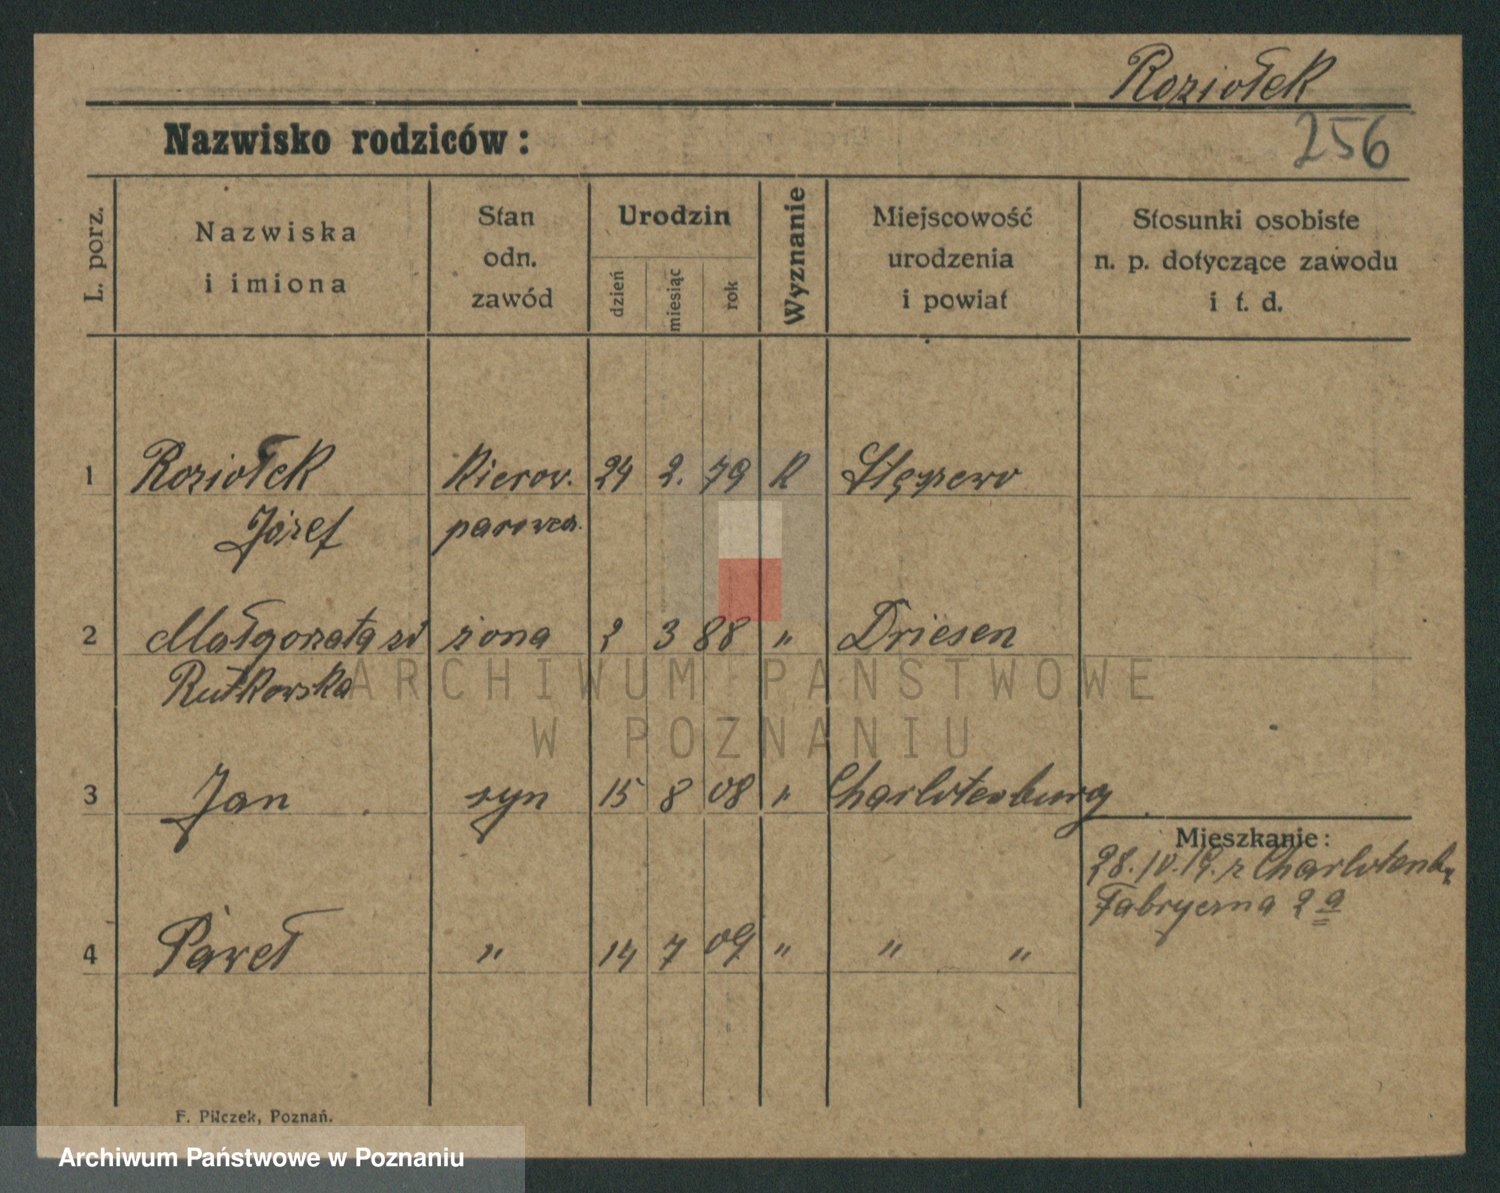 Roziołek
256
Nazwisko rodziców:
L. porz.
Nazwiska
i imiona
Stan
odn.
zawód
Urodzin
dzień
miesiąc
rok
Wyznanie
Miejscowość
urodzenia
i powiat
Stosunki osobiste
n. p. dotyczące zawodu
i t. d.
1 Roziołek Kierow. 24 2. 79 K
Józef
2 Małgorzata zd żona 2 3 88 " Driesen
Rutkowska
ARCHIWUM PAŃSTWOWE
W POZNANIU
3 Jan syn 15 8 08 " Charlotenburg
Mieszkanie:
28. IV. 19. z Charlotenb.
Fabryczna 2 a
4 Paweł " 14 7 09 " " "
F. Pilczek, Poznań.
Archiwum Państwowe w Poznaniu